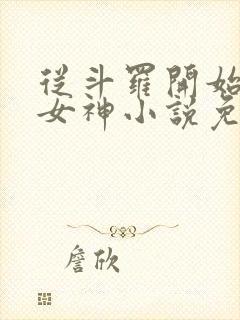 從斗羅開始
女神小說免
詹欣